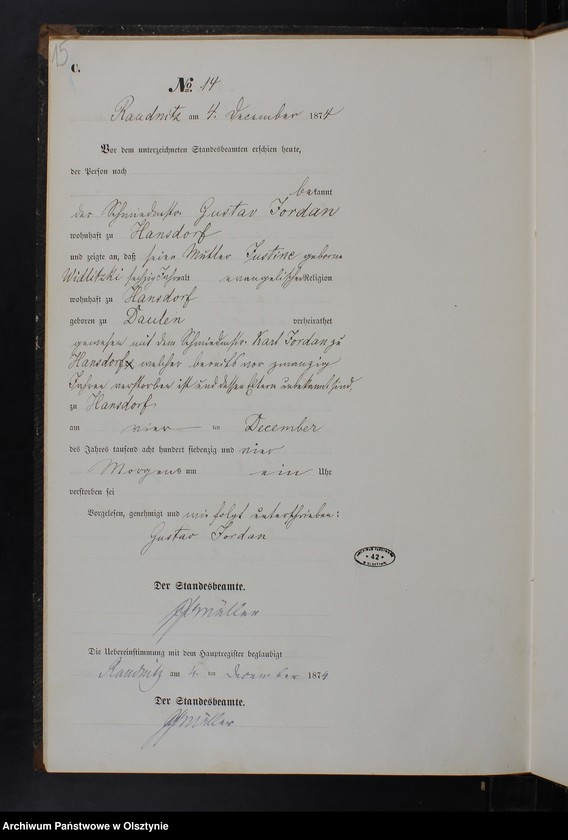 15
C.
No. 14
Raudnitz am 4. December 1874
Vor dem unterzeichneten Standesbeamten erschien heute,
der Person nach
bekannt
der Schmiedemstr. Gustav Jordan
wohnhaft zu Hansdorf
und zeigte an, daß seine Mutter Justine geborne
Widlitzki sechzig Jahr alt evangelischer Religion
wohnhaft zu Hansdorf
geboren zu Daulen verheirathet
gewesen mit dem Schmiedemstr. Karl Jordan zu
Hansdorf welcher bereits vor zwanzig
Jahren verstorben ist und dessen Eltern unbekannt sind.
zu Hansdorf
am vier ten December
des Jahres tausend acht hundert siebenzig und vier
Morgens um ein Uhr
verstorben sei
Vorgelesen, genehmigt und wie folgt unterschrieben:
Gustav Jordan
Der Standesbeamte.
Müller
Die Uebereinstimmung mit dem Hauptregister beglaubigt
Raudnitz am 4. ten December 1874
Der Standesbeamte.
Müller
* 42 *
Archiwum Państwowe w Olsztynie